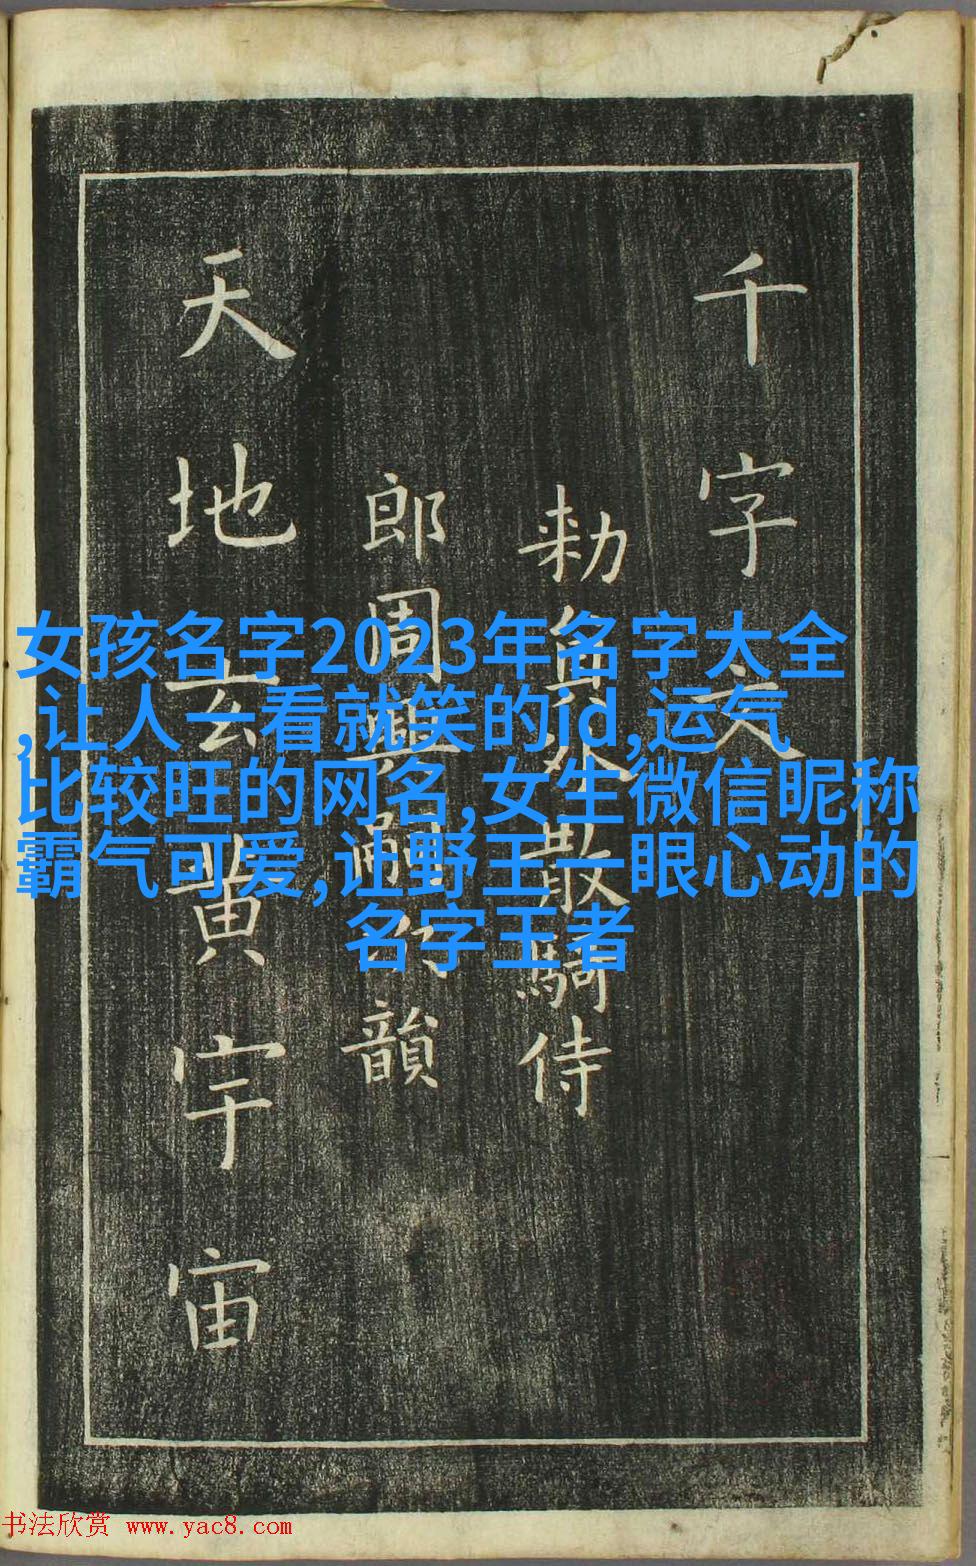 千字文
勅員外散騎侍
郎周興嗣次韻
天地玄黄宇宙
女孩名字2023年名字大全
,让人一看就笑的id,运气
比较旺的网名,女生微信昵称
霸气可爱,让野王一眼心动的
名字王者
书法欣赏 www.yac8.com